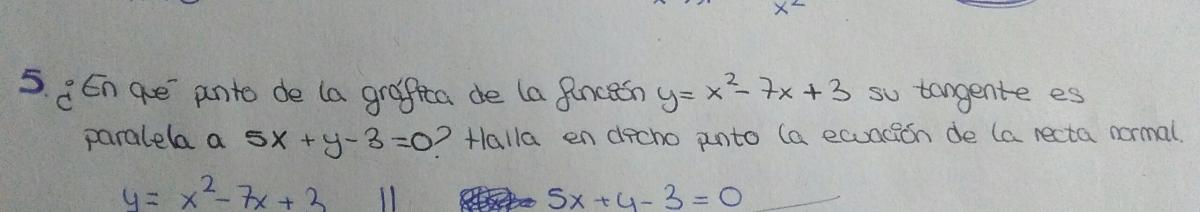 x²
5. ¿En qué punto de la gráfica de la función y = x² - 7x + 3 su tangente es
paralela a 5x + y - 3 = 0? Halla en dicho punto la ecuación de la recta normal.
y = x² - 7x + 3 || 5x + y - 3 = 0